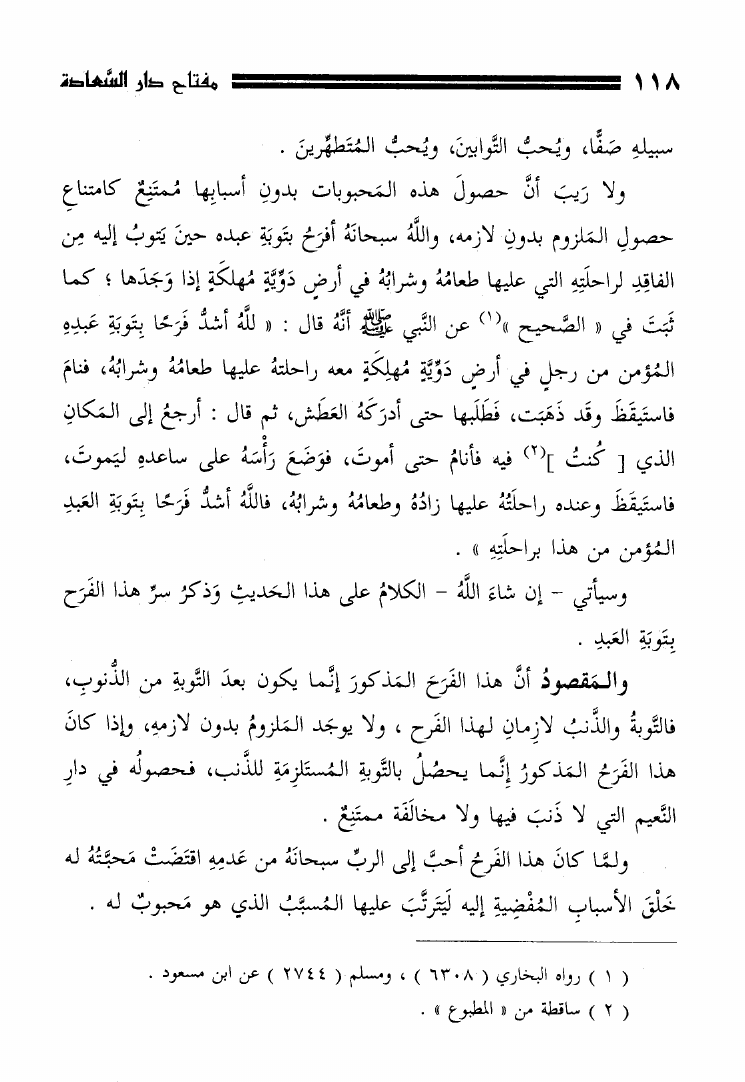 ١١٨ مفتاح دار السَّعادة
سبيلهِ صَفًّا، ويُحبُّ التَّوابينَ، ويُحبُّ المُتَطهِّرينَ .
ولا رَيبَ أنَّ حصولَ هذه المَحبوبات بدونِ أسبابِها مُمتَنِعٌ كامتناعِ
حصولِ المَلزوم بدونِ لازمه، واللَّهُ سبحانَهُ أفرَحُ بتَوبَةِ عبده حينَ يَتوبُ إليه مِن
الفاقِدِ لراحلَتِهِ التي عليها طعامُهُ وشرابُهُ في أرضٍ دَوِّيَّةٍ مُهلكَةٍ إذا وَجَدَها ؛ كما
ثَبَتَ في « الصَّحيح »(١) عن النَّبي ﷺ أنَّهُ قال : « للَّهُ أشدُّ فَرَحًا بِتَوبَةِ عَبدِهِ
المُؤمن من رجلٍ في أرضٍ دَوِّيَّةٍ مُهلِكَةٍ معه راحلتهُ عليها طعامُهُ وشرابُهُ، فنامَ
فاستَيقَظَ وقَد ذَهَبَت، فَطَلَبها حتى أدرَكَهُ العَطَش، ثم قال : أرجعُ إلى المَكانِ
الذي [ كُنتُ ](٢) فيه فأنامُ حتى أموتَ، فوَضَعَ رَأْسَهُ على ساعدهِ ليَموتَ،
فاستَيقَظَ وعنده راحلَتُهُ عليها زادُهُ وطعامُهُ وشرابُهُ، فاللَّهُ أشدُّ فَرَحًا بِتَوبَةِ العَبدِ
المُؤمن من هذا براحلَتِهِ » .
وسيأتي – إن شاءَ اللَّهُ – الكلامُ على هذا الحَديثِ وَذكرُ سرِّ هذا الفَرَح
بِتَوبَةِ العَبدِ .
والمَقصودُ أنَّ هذا الفَرَحَ المَذكورَ إنَّما يكون بعدَ التَّوبةِ من الذُّنوبِ،
فالتَّوبةُ والذَّنبُ لازِمانِ لهذا الفَرح ، ولا يوجَد المَلزومُ بدون لازمهِ، وإذا كانَ
هذا الفَرَحُ المَذكورُ إنَّما يحصُلُ بالتَّوبةِ المُستَلزِمَةِ للذَّنب، فحصولُه في دارِ
النَّعيم التي لا ذَنبَ فيها ولا مخالَفَة ممتَنِعٌ .
ولمَّا كانَ هذا الفَرحُ أحبَّ إلى الربِّ سبحانَهُ من عَدمِهِ اقتَضَتْ مَحبَّتُهُ له
خَلْقَ الأسبابِ المُفْضِيةِ إليه لَيَترتَّبَ عليها المُسبَّبُ الذي هو مَحبوبٌ له .
( ١ ) رواه البخاري ( ٦٣٠٨ ) ، ومسلم ( ٢٧٤٤ ) عن ابن مسعود .
( ٢ ) ساقطة من « المطبوع » .